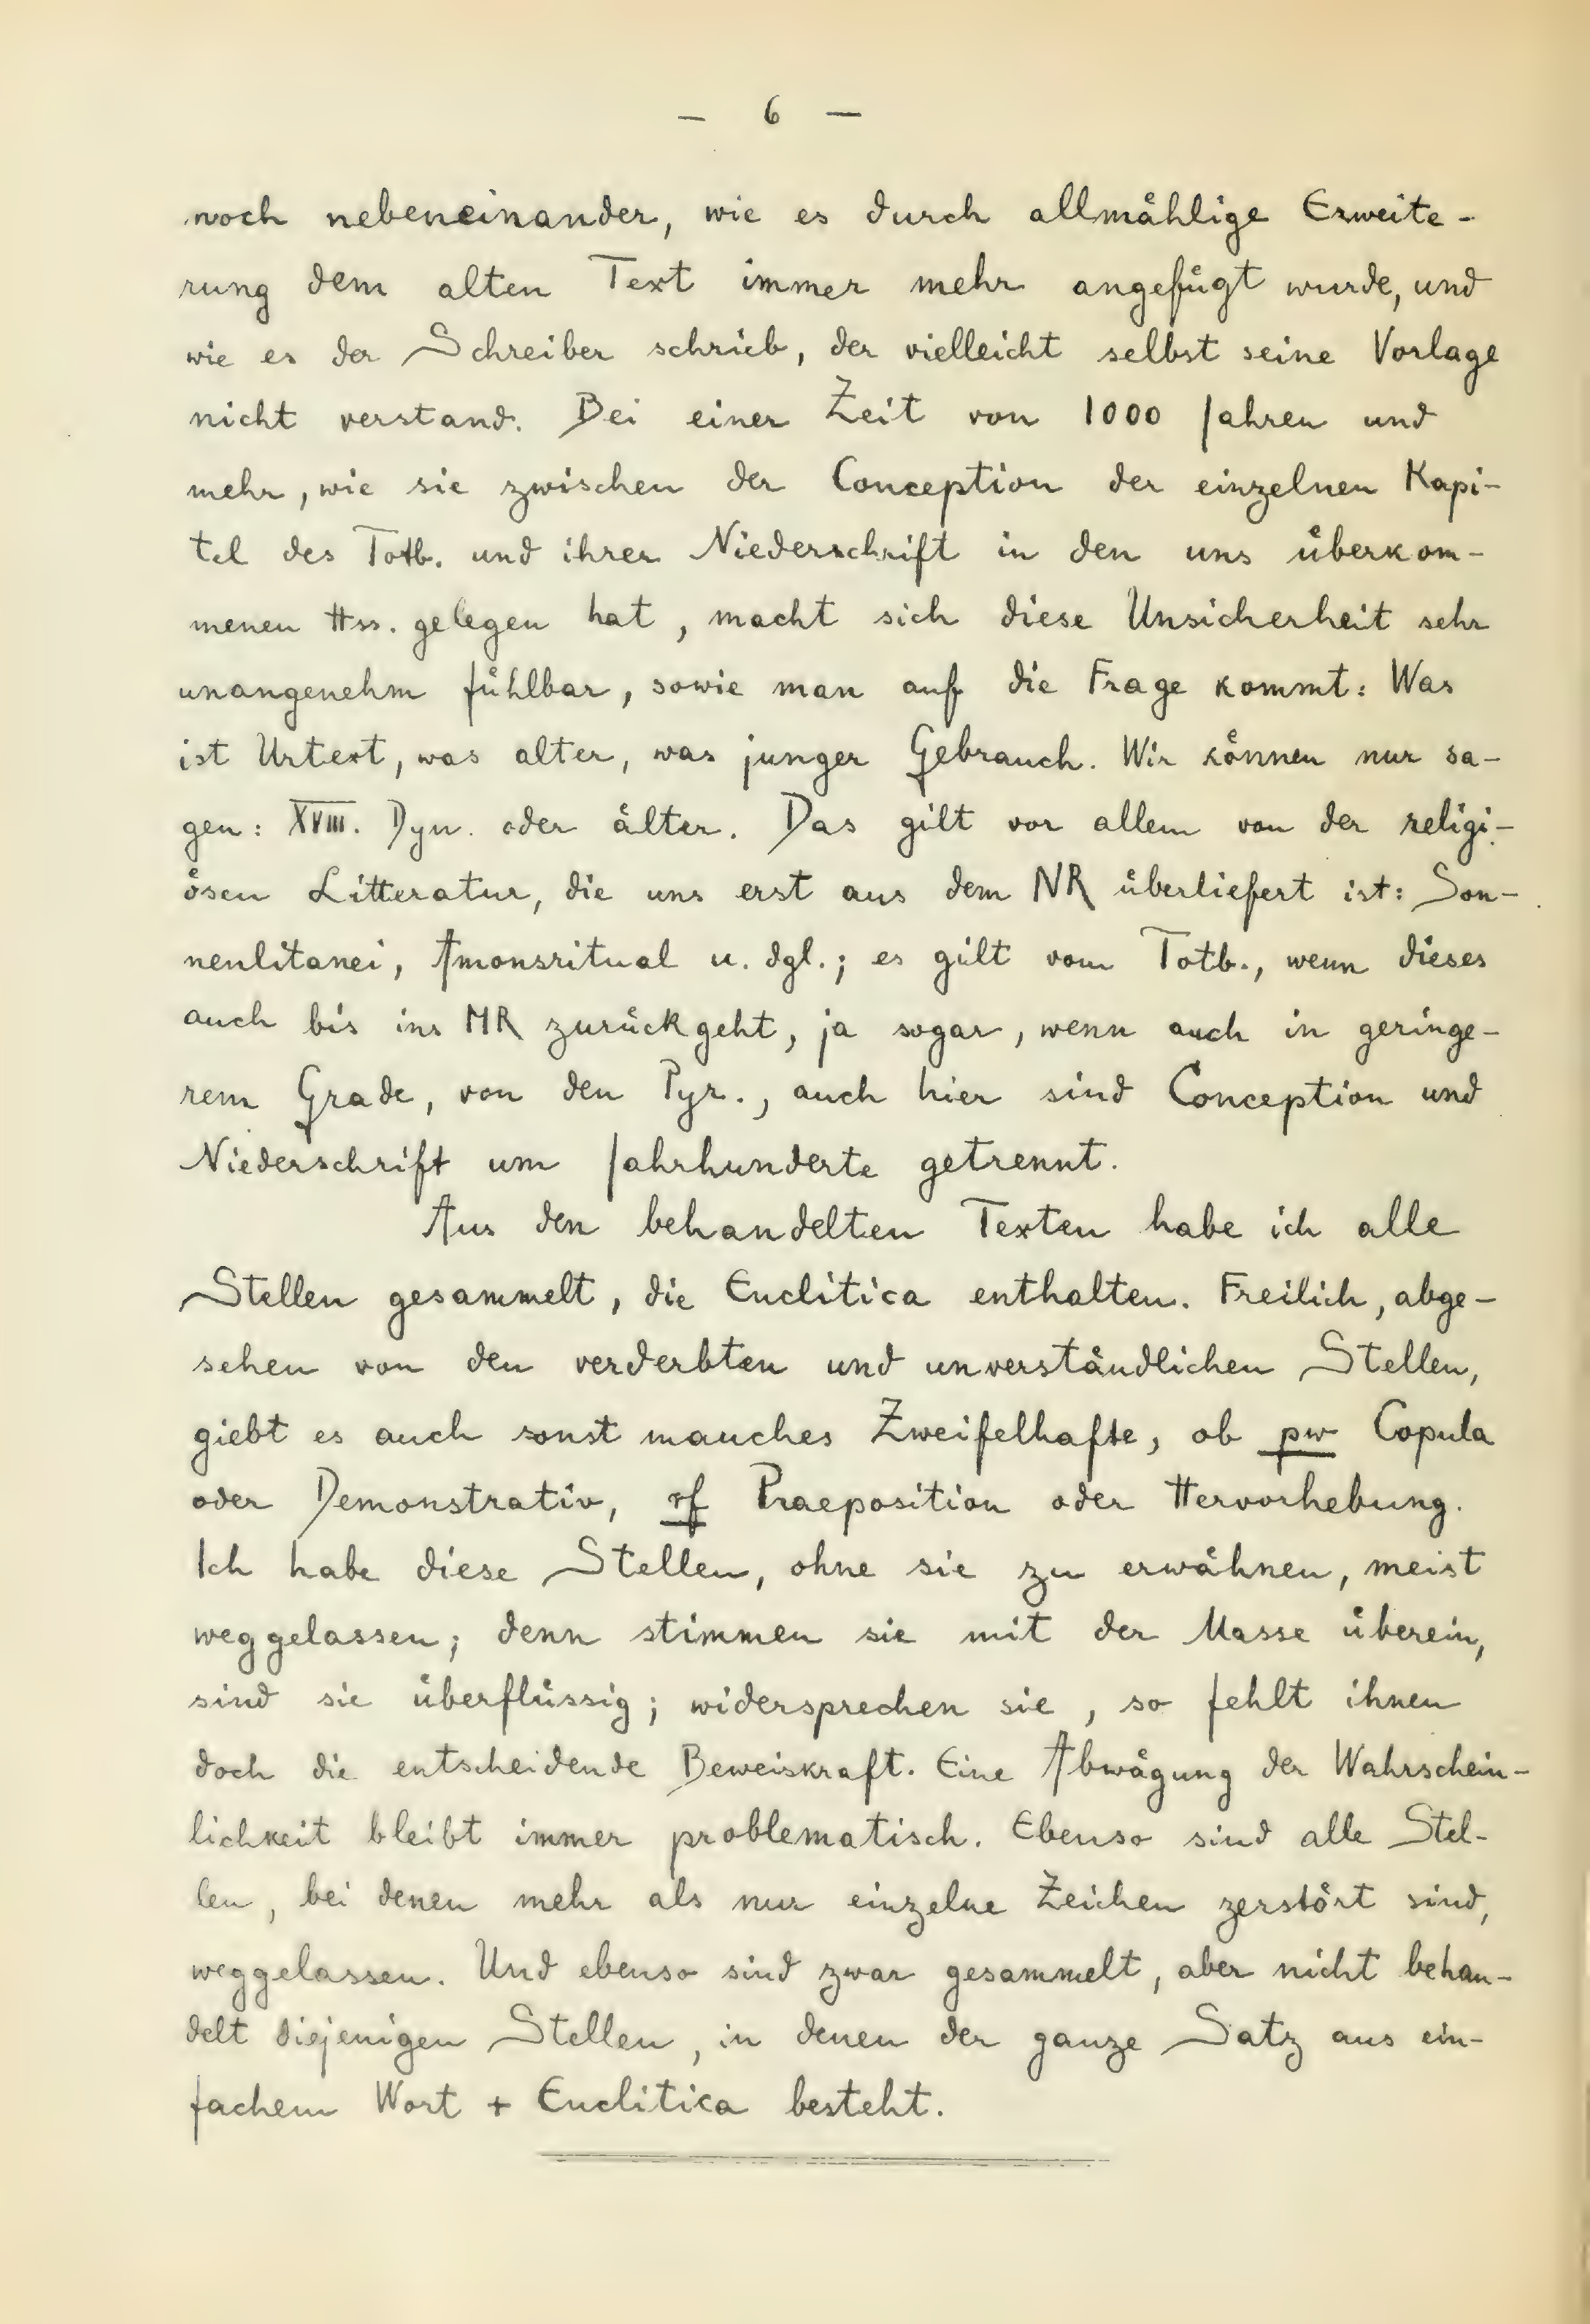 — 6 —
noch nebeneinander, wie es durch allmählige Erweite-
rung dem alten Text immer mehr angefügt wurde, und
wie es der Schreiber schrieb, der vielleicht selbst seine Vorlage
nicht verstand. Bei einer Zeit von 1000 Jahren und
mehr, wie sie zwischen der Conception der einzelnen Kapi-
tel des Totb. und ihrer Niederschrift in den uns überkom-
menen Hss. gelegen hat, macht sich diese Unsicherheit sehr
unangenehm fühlbar, sowie man auf die Frage kommt: Was
ist Urtext, was alter, was junger Gebrauch. Wir können nur sa-
gen: XVIII. Dyn. oder älter. Das gilt vor allem von der religi-
ösen Litteratur, die uns erst aus dem NR überliefert ist: Son-
nenlitanei, Amonsritual u. dgl.; es gilt vom Totb., wenn dieses
auch bis ins MR zurückgeht, ja sogar, wenn auch in geringe-
rem Grade, von den Pyr., auch hier sind Conception und
Niederschrift um Jahrhunderte getrennt.
Aus den behandelten Texten habe ich alle
Stellen gesammelt, die Enclitica enthalten. Freilich, abge-
sehen von den verderbten und unverständlichen Stellen,
giebt es auch sonst manches Zweifelhafte, ob pw Copula
oder Demonstrativ, rf Praeposition oder Hervorhebung.
Ich habe diese Stellen, ohne sie zu erwähnen, meist
weggelassen; denn stimmen sie mit der Masse überein,
sind sie überflüssig; widersprechen sie, so fehlt ihnen
doch die entscheidende Beweiskraft. Eine Abwägung der Wahrschein-
lichkeit bleibt immer problematisch. Ebenso sind alle Stel-
len, bei denen mehr als nur einzelne Zeichen zerstört sind,
weggelassen. Und ebenso sind zwar gesammelt, aber nicht behan-
delt diejenigen Stellen, in denen der ganze Satz aus ein-
fachem Wort + Enclitica besteht.